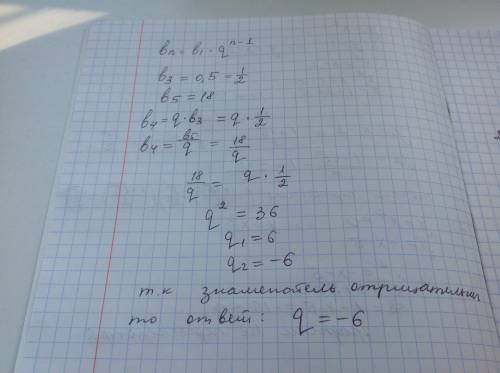 вn = в1 · q^(n-1)
в3 = 0,5 = 1/2
в5 = 18
в4 = q · в3 = q · 1/2
в4 = в5/q = 18/q
18/q = q · 1/2
q² = 36
q1 = 6
q2 = -6
т.к знаменатель отрицательный
то ответ: q = -6